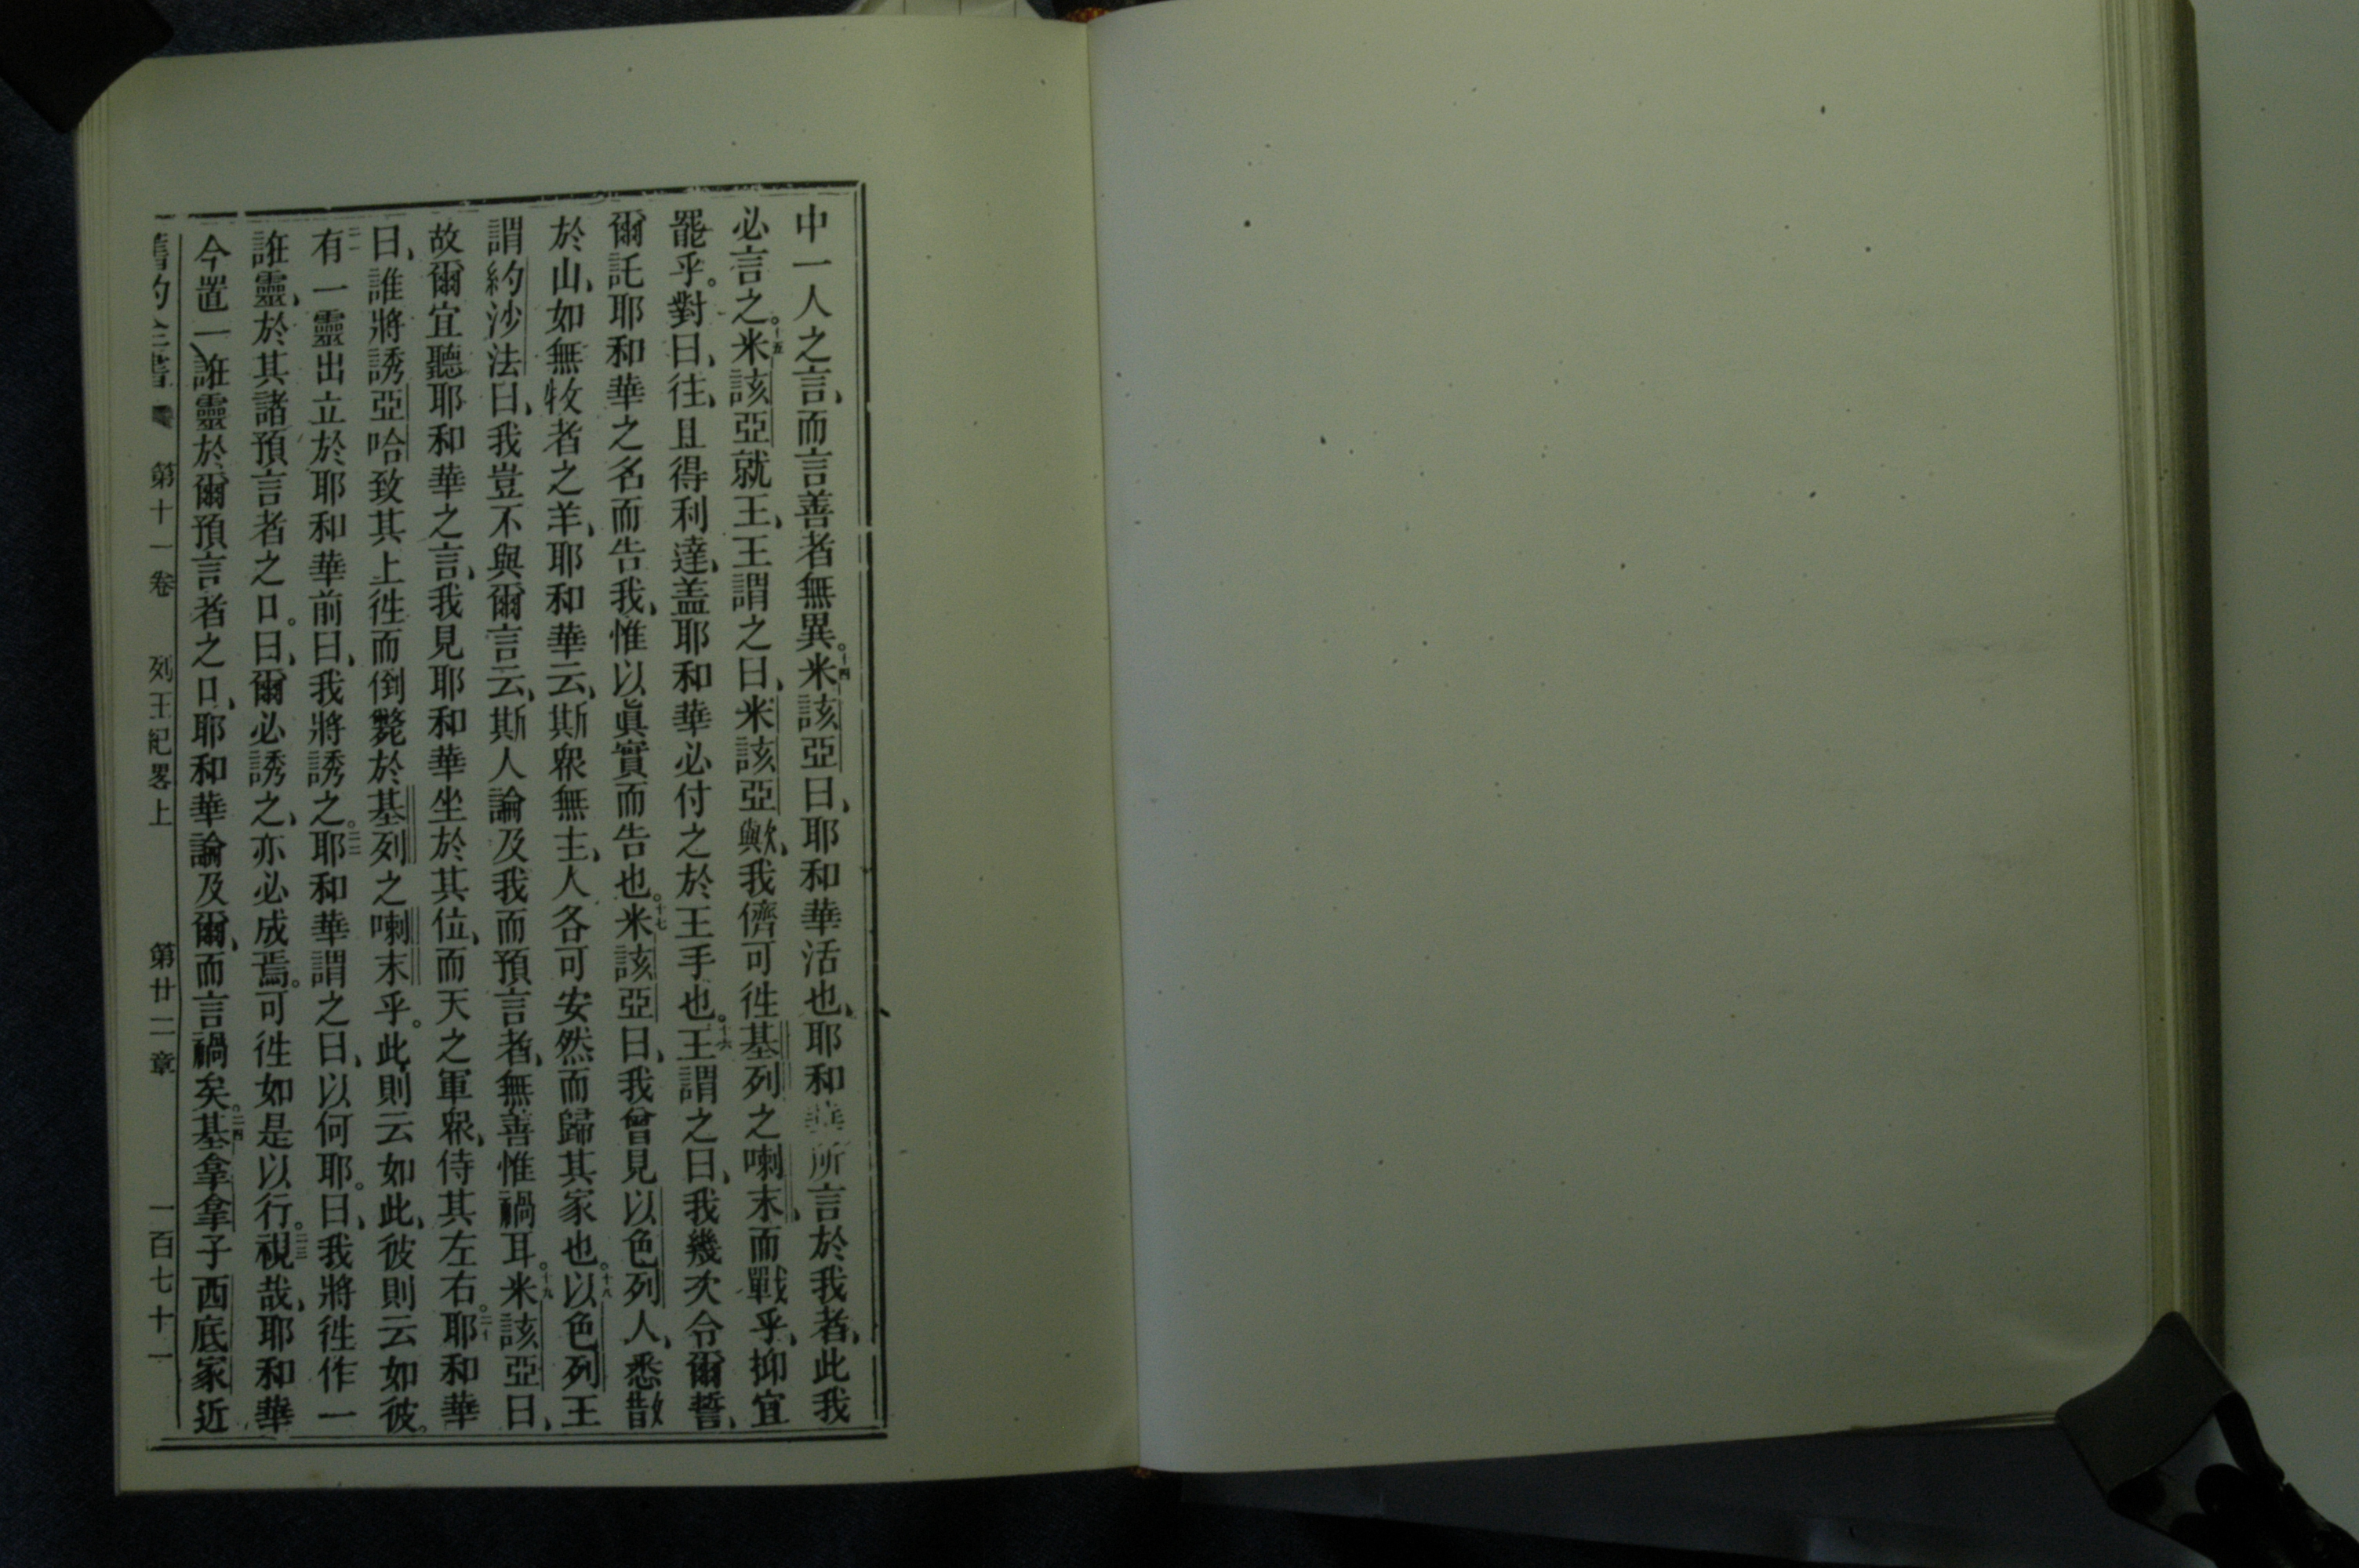 中一人之言、而言善者無異。十四米該亞曰、耶和華活也、耶和華所言於我者、此我
必言之。十五米該亞就王、王謂之曰、米該亞歟、我儕可徃基列之喇末而戰乎、抑宜
罷乎。對曰、往、且得利達、盖耶和華必付之於王手也。十六王謂之曰、我幾次令爾誓、
爾託耶和華之名而告我、惟以眞實而告也。十七米該亞曰、我曾見以色列人、悉散
於山、如無牧者之羊、耶和華云、斯衆無主、人各可安然而歸其家也。十八以色列王
謂約沙法曰、我豈不與爾言云、斯人論及我而預言者、無善惟禍耳。十九米該亞曰、
故爾宜聽耶和華之言、我見耶和華坐於其位、而天之軍衆、侍其左右。二十耶和華
曰、誰將誘亞哈致其上徃而倒斃於基列之喇末乎。此則云如此、彼則云如彼。
二一有一靈出立於耶和華前曰、我將誘之。二二耶和華謂之曰、以何耶。曰、我將徃作一
誑靈、於其諸預言者之口。曰、爾必誘之、亦必成焉。可徃如是以行。二三視哉、耶和華
今置一誑靈於爾預言者之口、耶和華論及爾、而言禍矣。二四基拿拿子西底家近
舊約全書 第十一卷 列王紀畧上 第廿二章 一百七十一